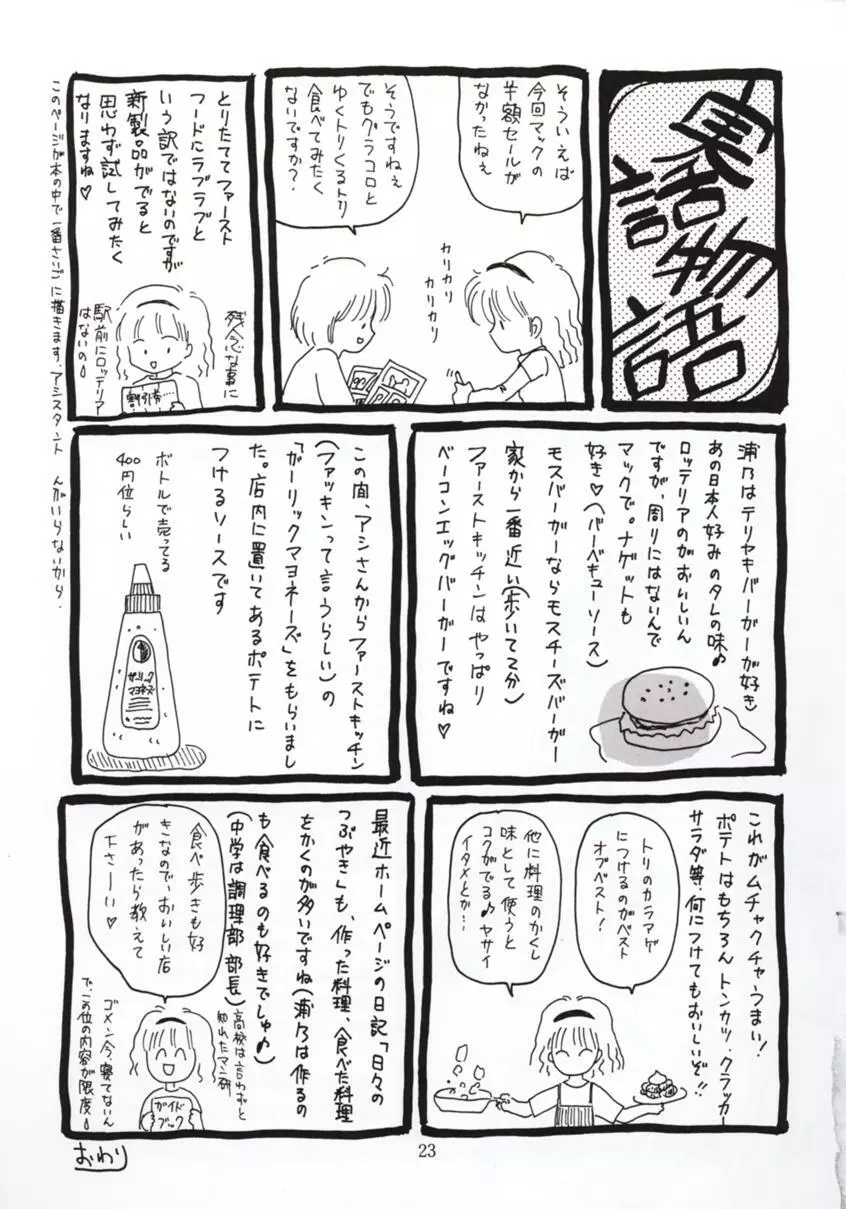 実話物語
そういえば
今回マックの
半額セールが
なかったねぇ
そうですねぇ
でもグラコロと
ゆくトリくるトリ
食べてみたく
ないですか?
カリカリ
カリカリ
とりたててファースト
フードにラブラブと
いう訳ではないのですが
新製品がでると
思わず試してみたく
なりますね♡
残念な事に
駅前にロッテリア
はないの
割引券…
このページが本の中で一番さいごに描きます.アシスタント
んがいらないから.
浦乃はテリヤキバーガーが好き
あの日本人好みのタレの味♪
ロッテリアのがおいしいん
ですが、周りにはないんで
マックで。ナゲットも
好き♡(バーベキューソース)
モスバーガーならモスチーズバーガー
家から一番近い(歩いて2分)
ファーストキッチンはやっぱり
ベーコンエッグバーガーですね♡
この間、アシさんからファーストキッチン
(ファッキンって言うらしい)の
「ガーリックマヨネーズ」をもらいまし
た。店内に置いてあるポテトに
つけるソースです
ボトルで売ってる
400円位らしい
ガーリック
マヨネーズ
これがムチャクチャうまい!
ポテトはもちろん トンカツ・クラッカー
サラダ等・何につけてもおいしいぞ!!
トリのカラアゲ
につけるのがベスト
オブベスト!
他に料理のかくし
味として使うと
コクがでる♪ヤサイ
イタメとか…
最近ホームページの日記「日々の
つぶやき」も、作った料理、食べた料理
をかくのが多いですね(浦乃は作るの
も食べるのも好きでしゅ♪)
(中学は調理部 部長)
高校は言わずと
知れたマン研
食べ歩きも好
きなので、おいしい店
があったら教えて
下さーい♡
ゴメン今、寝てないん
で、この位の内容が限度
ガイド
ブック
おわり
23